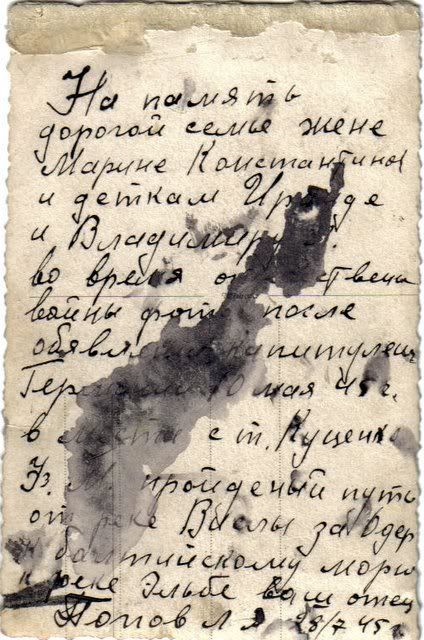 На память
дорогой семье жене
Марине Константинов
и деткам Ираиде
и Владимиру
во время
войны фото после
обявления капитуляции
Германии 10 мая 45 г.
в месте с т. Куценко
пройденый путь
от реке Вислы за Одер
к балтийскому морю
и реке Эльбе ваш отец
Попов Л Я 28/7 45 г